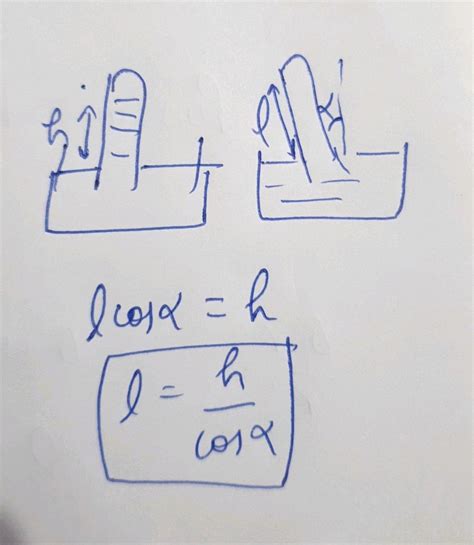 h l α
l cosα = h
l = h / cosα